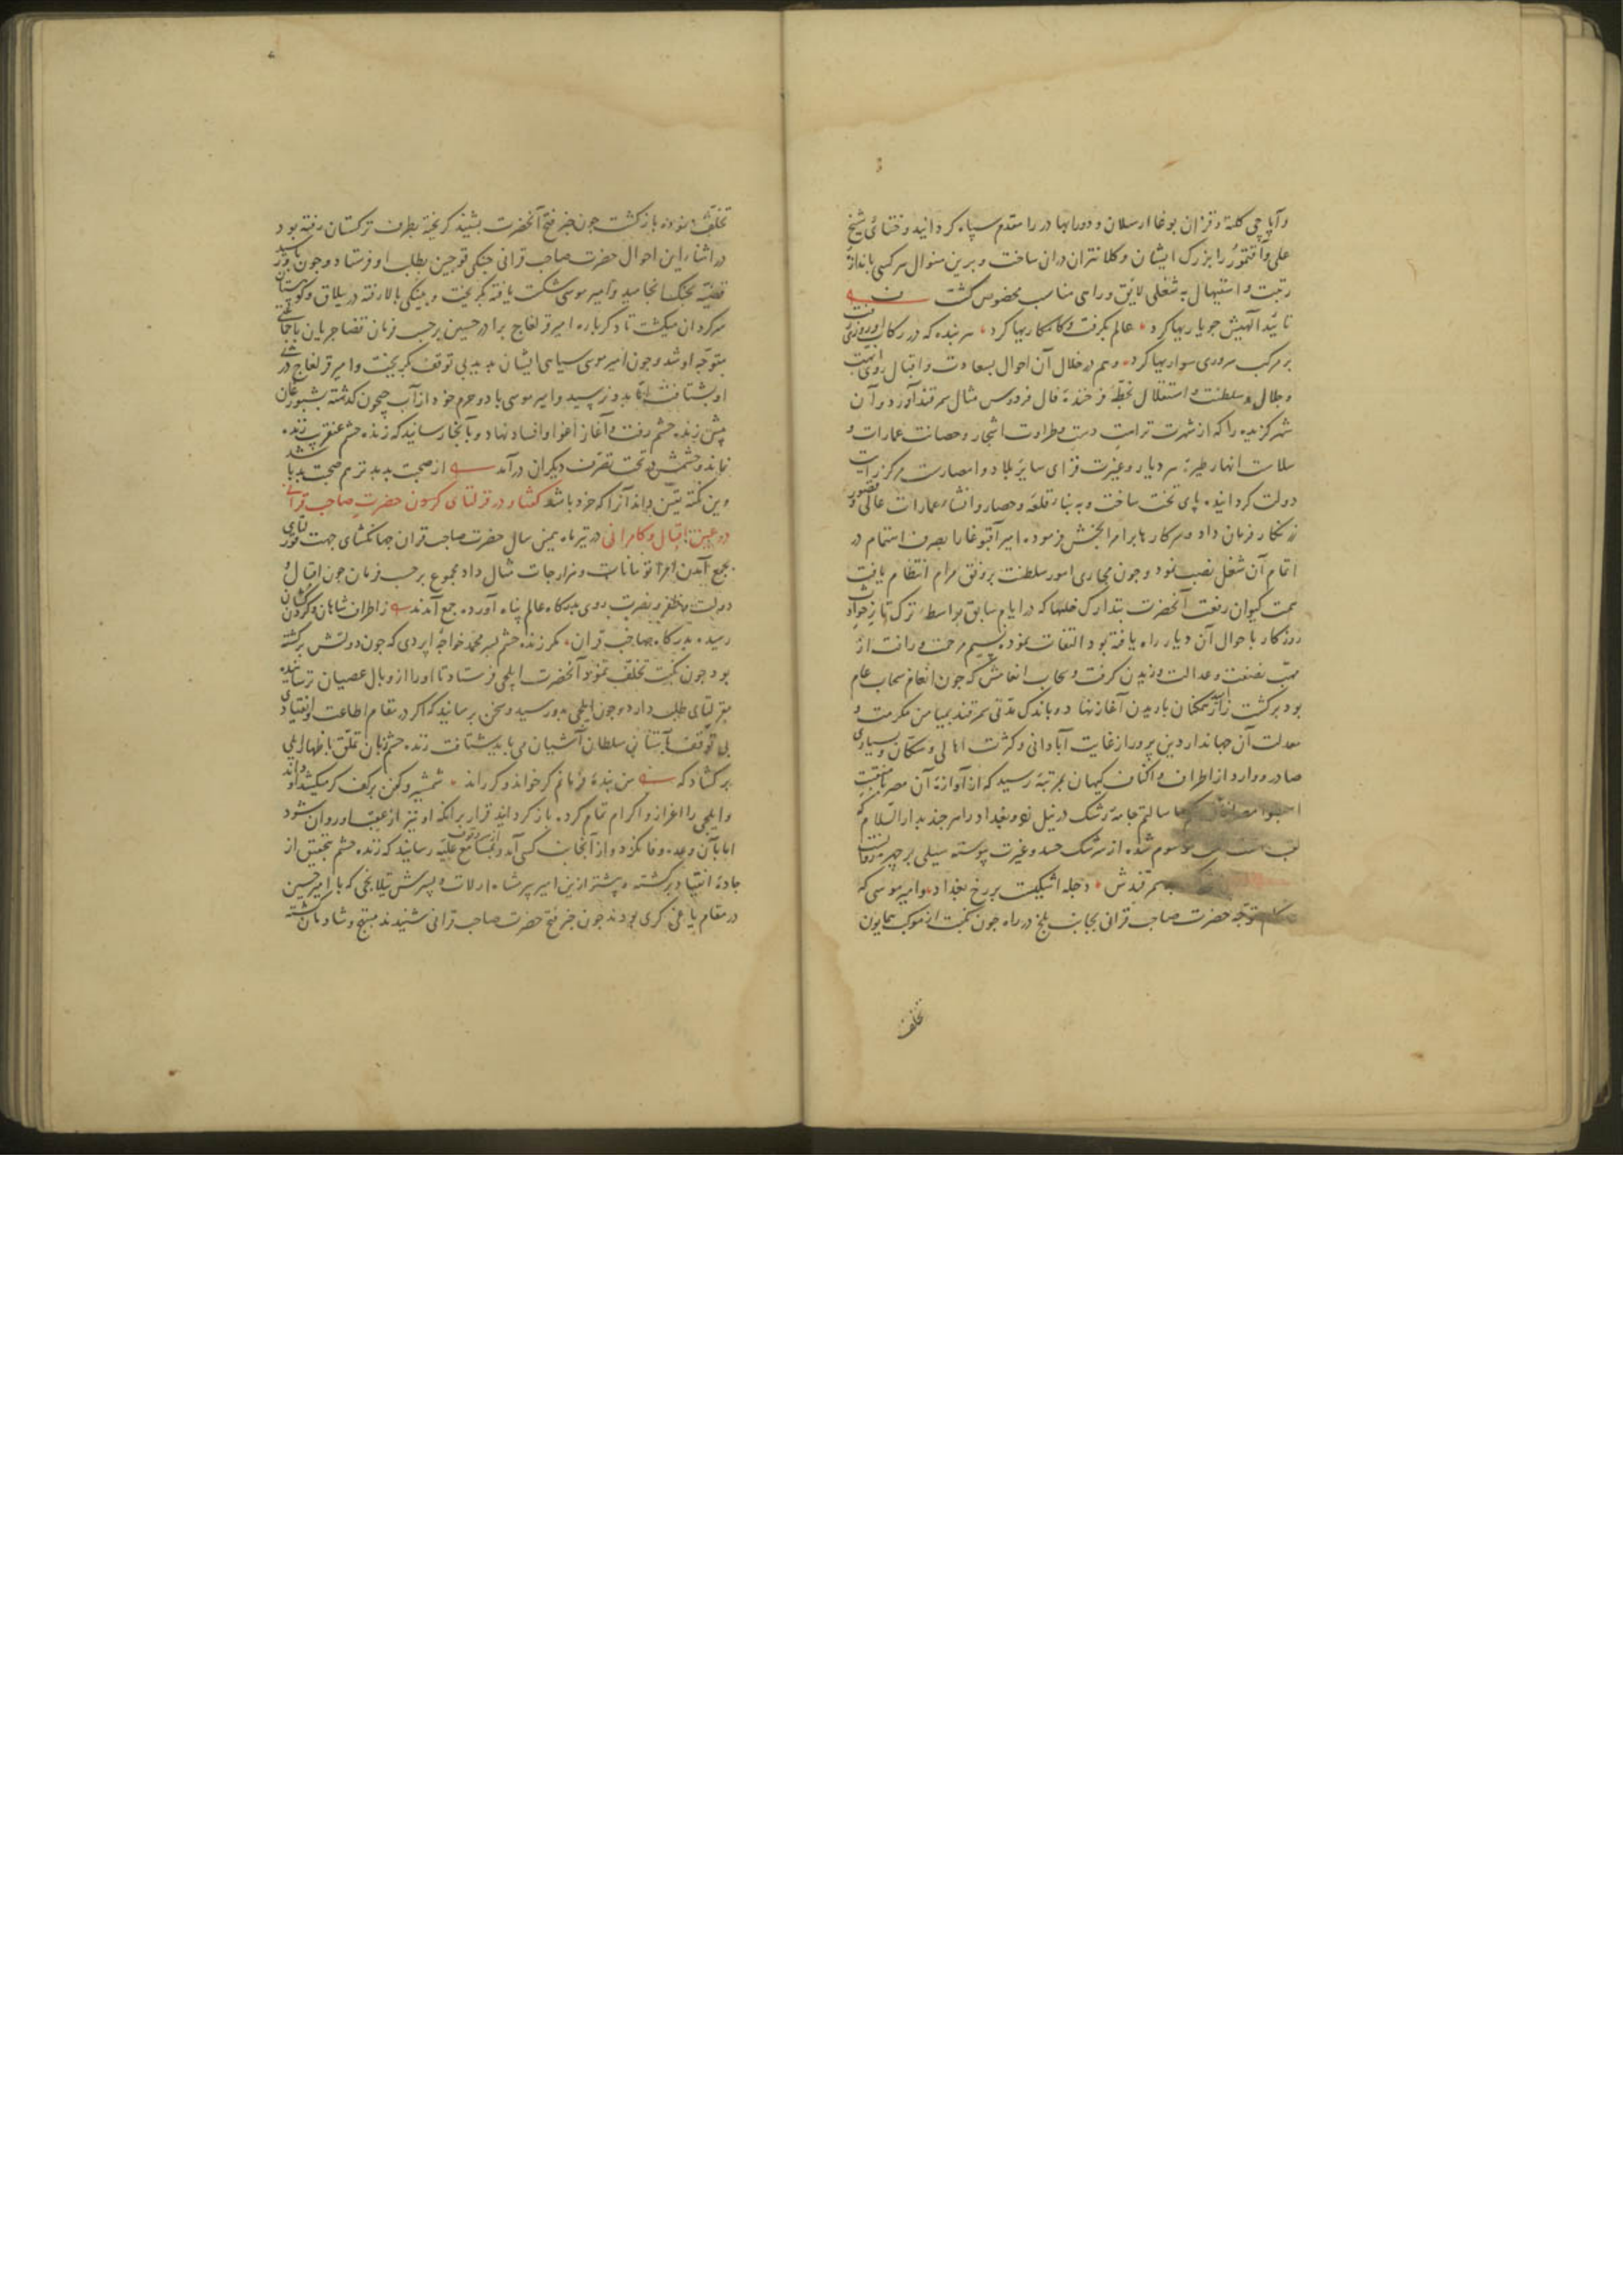 وآپاچی کلته وقزان بوغا ارسلان و دورابهادر را مقدم سپاه کردانید و ختائی شیخ
علی وآقتمور را بزرک ایشان و کلانتران دران ساخت و برین منوال هر کسی باندازهٔ
رتبت و استیهال به شغلی لایق و راهی مناسب مخصوص کشت
تایید الهیش جو یاریها کرد عالم بکرفت و کامکاریها کرد هر بنده که در رکاب او روزی رفت
بر مرکب سروری سواریها کرد و هم در خلال آن احوال بسعادت و اقبال روی ابهت
و جلال و سلطنت و استقلال بخطهٔ فرخندهٔ فال فردوس مثال سمرقند آورد و آن
شهر کزیده را که از شهرت نزاهت و طراوت اشجار و حصانت عمارات و
سلاست انهار طیرهٔ هر دیار و غیرت فزای سایر بلاد و امصارست مرکز رایت
دولت کردانیده پای تخت ساخت و به بناء قلعه و حصار و انشاء عمارات عالی و قصور
زرنکار فرمان داد و سرکارها بر امرا بخش فرموده امیر آقبوغا را بصرف اهتمام در
اتمام آن شغل نصب نمود و چون مجاری امور سلطنت بر وفق مرام انتظام یافت
همت کیوان رفعت آنحضرت بتدارک خللها که در ایام سابق بواسطهٔ ترک تاز حوادث
روزکار باحوال آن دیار راه یافته بود التفات نمود نسیم مرحمت و رافت از
مهب نصفت و عدالت وزیدن کرفت و سحاب انعامش که چون انعام سحاب عام
بود برکشت زار آز ممکنان باریدن آغاز نهاد و باندک مدتی سمرقند بمیامن مکرمت و
معدلت آن جهاندار دین پرور از غایت آبادانی و کثرت اهالی و سکان و بسیاری
صادر و وارد از اطراف و اکناف کیهان بمرتبهٔ رسید که از آوازهٔ آن مصر با منقبت
سالتم جامهٔ رشک در نیل زد و بغداد را هر چند بدار السلام که
موسوم شده از سرشک حسد و غیرت پیوسته سیلی بر چهره
سمرقندش دجله اشکیست بر رخ بغداد و امیر موسی که
هنکام توجه حضرت صاحب قرانی بجانب بلخ در راه چون نکبت از موکب همایون
تخلف
تخلف نموده بازکشت چون خبر فتح آنحضرت بشنید کریخته بطرف ترکستان رفته بود
در اثناء این احوال حضرت صاحب قرانی جیکی قوجین بطلب او فرستاد و چون باو رسید
قضیه بجنک انجامید و امیر موسی شکست یافته بکریخت و جیکی بالا رفته در ییلاق و کوهستان
سرکردان میکشت تا دکر باره امیر قلغاج برادر حسین بر حسب فرمان قضا جریان با جمعی
متوجه او شد و چون امیر موسی سیاهی ایشان بدید بی توقف بکریخت و امیر قلغاج در پی
او بشتافت اما بدو نرسید و امیر موسی با دو حرم خود از آب جیحون کذشته بشبورغان
پیش زنده حشم رفت و آغاز اغوا و افساد نهاد و بآنجا رسانید که زنده حشم عنقریب زنده
نماند و حشمش در تحت تصرف دیکران درآمد از صحبت بد بدتر هم صحبت بد باشد
وین نکته یقین داند آنرا که خرد باشد کفتار در قرلتای کردن حضرت صاحب قرانی
در عین اقبال و کامرانی در تیر ماه همین سال حضرت صاحب قران جهانکشای جهت قورلتای
بجمع آمدن امرا تومانات و هزارجات مثال داد مجموع بر حسب فرمان چون اقبال و
دولت و ظفر و نصرت روی بدرکاه عالم پناه آورده جمع آمدند ز اطراف شاهان و کردن کشان
رسیده بدرکاه صاحب قران مکر زنده حشم پسر محمد خواجه اپردی که چون دولتش برکشته
بود چون نکبت تخلف نمود آنحضرت ایلچی فرستاد تا او را از وبال عصیان ترسانیده
بقرلتای طلب دارد و چون ایلچی بدو رسید و سخن برسانید که اکر در مقام اطاعت و انقیادی
بی توقف بآستان سلطان آشیان می باید شتافت زنده حشم زبان تملق باظهار ایلی
برکشاد که من بندهٔ فرمانم کر خواند و کر راند شمشیر و کفن بر کف کر میکشد او داند
و ایلچی را اعزاز و اکرام تمام کرده بازکردانید قرار برانکه او نیز از عقب او روان شود
اما بآن وعده وفا نکرد و از آنجانب کسی آمد و بمسامع علیه رسانید که زنده حشم بتحقیق از
جادهٔ انقیاد برکشته و پیشتر ازین امیر پیرشاه ارلات و پسرش تیلانجی که با امیر حسین
در مقام یاغی کری بودند چون خبر فتح حضرت صاحب قرانی شنیدند مبتهج و شادمان کشته